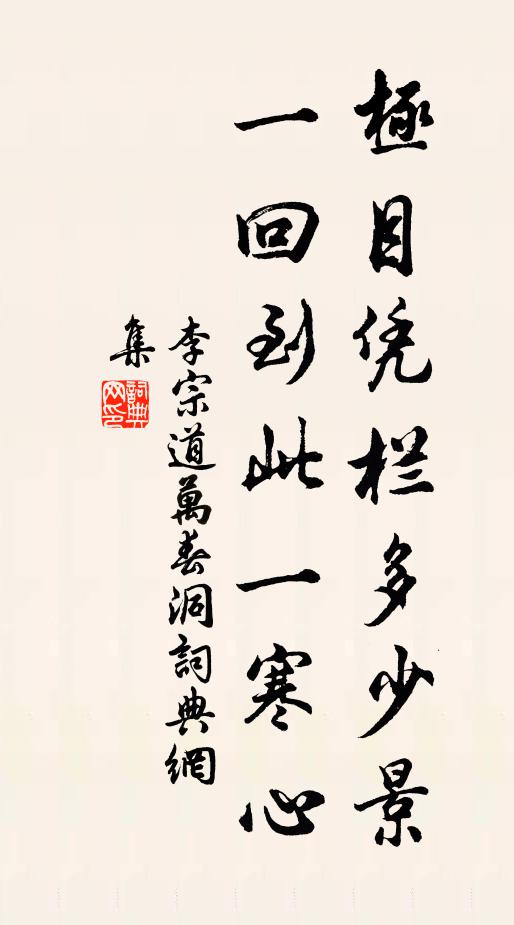 極目凭栏多少景
一回到此一寒心
李宗道萬春洞詞典網
集
詞典網印